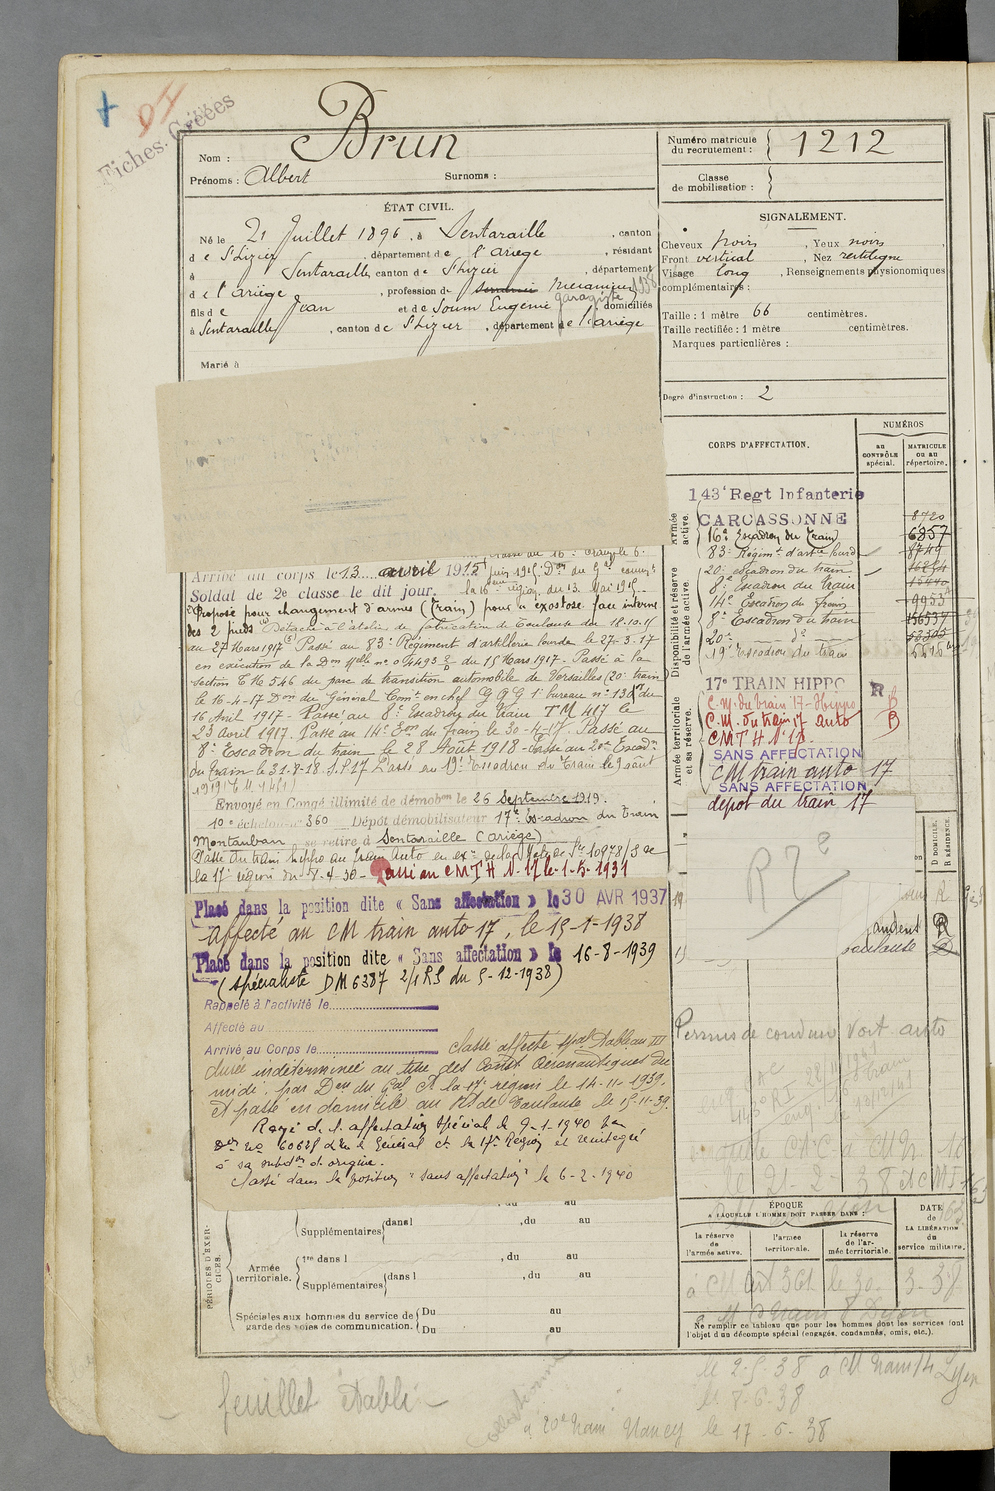 DI
Fiches. Créées
Nom : Brun
Prénoms : Albert Surnoms :
Numéro matricule du recrutement : 1212
Classe de mobilisation :
ÉTAT CIVIL.
Né le 21 Juillet 1896, à Sentaraille, canton
de St Lizier, département de l'Ariège, résidant
à Sentaraille canton de St Lizier, département
de l'Ariège, profession de mécanicien
garagiste
fils de Jean et de Soum Eugénie domiciliés
à Sentaraille, canton de St Lizier, département de l'Ariège
Marié à
SIGNALEMENT.
Cheveux noirs, Yeux noirs
Front vertical, Nez rectiligne
Visage long, Renseignements physionomiques
complémentaires :
Taille : 1 mètre 66 centimètres.
Taille rectifiée : 1 mètre centimètres.
Marques particulières :
Degré d'instruction : 2
CORPS D'AFFECTATION.
NUMÉROS
au CONTRÔLE spécial.
MATRICULE ou au répertoire.
Armée active.
143e Regt Infanterie
CARCASSONNE 8720
16e Escadron du Train 6857
83e Régim't d'art'ie lourd 8749
Disponibilité et réserve de l'armée active.
20e escadron du train
8e Escadron du train
14e Escadron du train 9953
8e Escadron du train
20e d°
19e Escadron du train
Armée territoriale et sa réserve.
17e TRAIN HIPPO R B
C.M. du train 17 - Hippo
C.M. du train 17 auto B
CMTH N° 17
SANS AFFECTATION
CM train auto 17
SANS AFFECTATION
dépot du train 17
Arrivé au corps le 13 avril 1915
Soldat de 2e classe le dit jour. la 16e région du 13 Mai 1915
Proposé pour changement d'armes (train) pour exostose face interne
des 2 pieds Détaché à l'atelier de fabrication de Toulouse du 18.10.15
au 27 Mars 1917 Passé au 83e Régiment d'artillerie lourde le 27-3-17
en exécution de la Don Mlle n° 04493 du 15 Mars 1917 - Passé à la
section TM 546 du parc de transition automobile de Versailles (20e train)
le 16-4-17 Don du Général Comt en chef G Q G 1er bureau n° du
16 Avril 1917 - Passé au 8e Escadron du Train TM 417 le
23 Avril 1917. Passé au 14e Eon du train le 30-4-17. Passé au
8e Escadron du train le 28 Août 1918 - Passé au 20e Escadon
du Train le 31-8-18. Passé au 19e Escadron du Train le 9 août
1919
Envoyé en Congé illimité de démobon le 26 Septembre 1919.
10e échelon n° 360 Dépôt démobilisateur 17e Escadron du Train
Montauban, se retire à Sentaraille (Ariège)
Passé du train hippo au train auto en ex. de la Note de Sce 10978/3 de
la 17e région du 8-4-30 - Passé au CMTH N° 17 le 1-5-1931
Placé dans la position dite « Sans affectation » le 30 AVR 1937
Affecté au CM train auto 17, le 15-1-1938
Placé dans la position dite « Sans affectation » le 16-8-1939
(spécialiste DM 6387 2/1 RS du 5-12-1938)
Rappelé à l'activité le
Affecté au
Arrivé au Corps le
Classé affecté spal tableau III
durée indéterminée au titre des Const Aéronautiques du
midi, par Don du Gal Ct la 17e région le 14-11-1939.
et passé en domicile au Rt de Toulouse le 15-11-39.
Rayé de l'affectation spécial le 9-1-1940
Don no 60625 du Général Ct la 17e Région et réintégré
à sa subdon d'origine.
Classé dans la position "sans affectation" le 6-2-1940
R 7e
D DOMICILE.
R RÉSIDENCE.
Permis de conduire Voit. auto
le 21-2-38
PÉRIODES D'EXERCICES.
Supplémentaires dans l , du au
Armée territoriale.
1re dans l , du au
Supplémentaires dans l , du au
Spéciales aux hommes du service de garde des voies de communication.
Du au
Du au
ÉPOQUE
A LAQUELLE L'HOMME DOIT PASSER DANS :
la réserve de l'armée active.
l'armée territoriale.
la réserve de l'armée territoriale.
DATE de LA LIBÉRATION du service militaire.
à CM Art 361 le 30-3-38
à M train 8 Dijon
Ne remplir ce tableau que pour les hommes dont les services font
l'objet d'un décompte spécial (engagés, condamnés, omis, etc.).
le 2-5-38 à CM train 14 Lyon
le 8-6-38
feuillet établi
à 20e train Nancy le 17-6-38